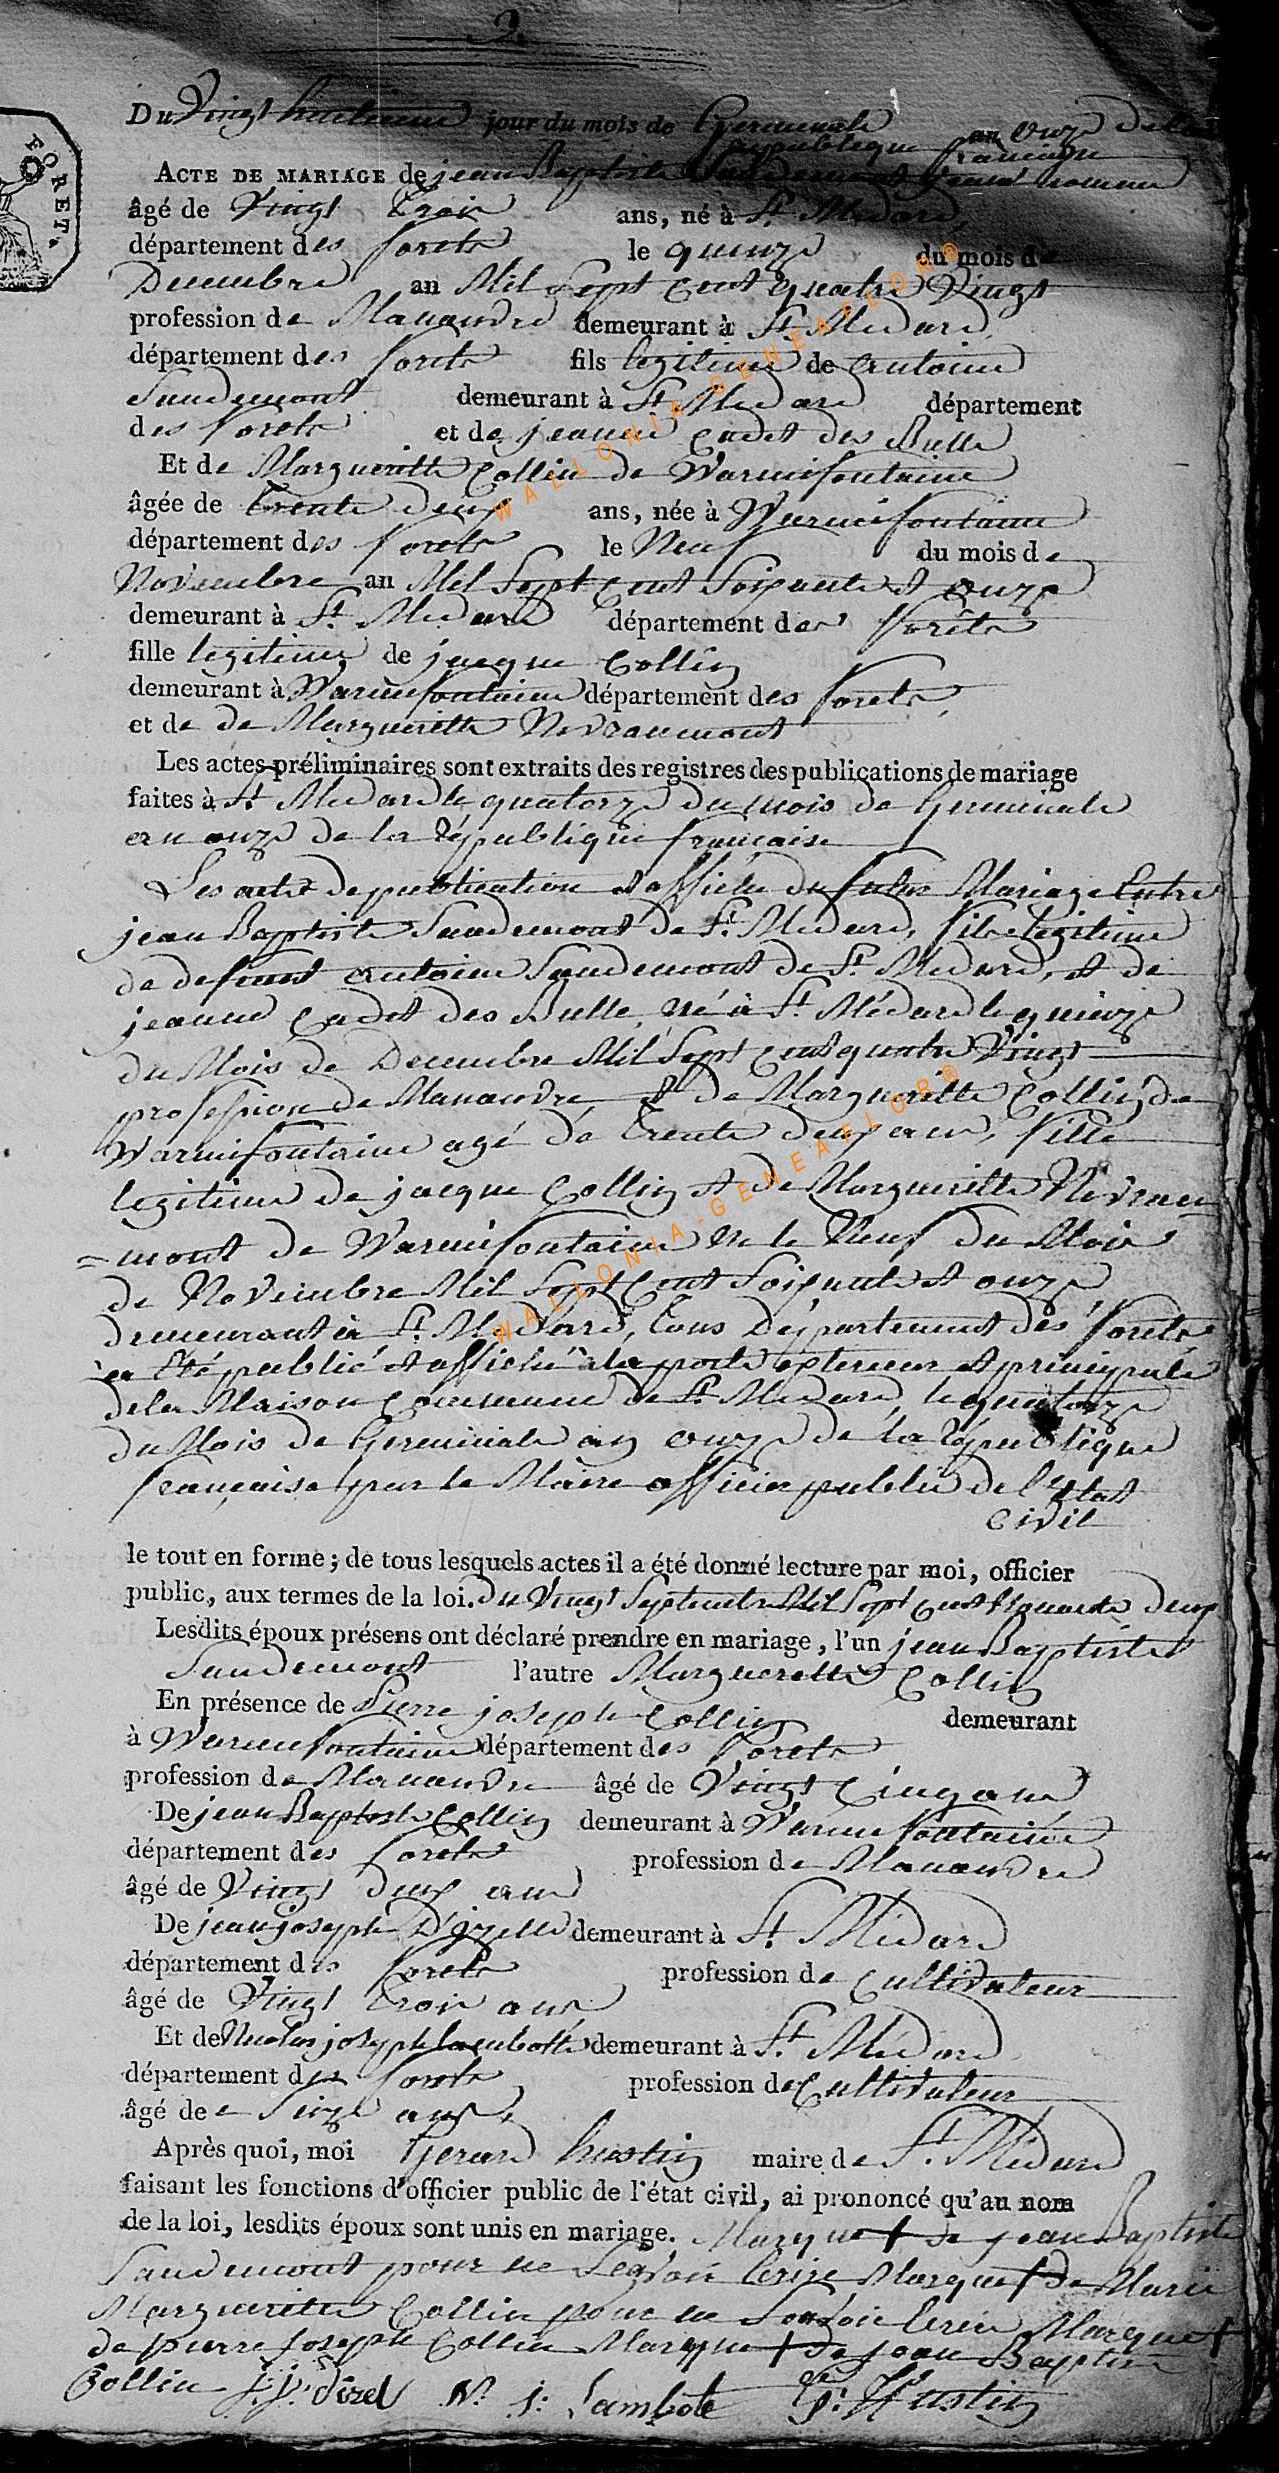 3.
FORET.
Du Vingt huitieme jour du mois de Germinale an onze de la
republique francaise
ACTE DE MARIAGE de jean Baptiste Saudemont
âgé de Vingt Trois ans, né à St. Medard
département des forets le quinze du mois de
Decembre an Mil Sept Cent quatre Vingt
profession de Manœuvre demeurant à St. Medard
département des forets fils legitime de Antoine
Saudemont demeurant à St. Medard département
des forets et de jeanne Cadet des Bulle
Et de Margueritte Collin de Warmifontaine
âgée de Trente deux ans, née à Warmifontaine
département des forets le Neuf du mois de
Novembre an Mil Sept Cent Soixante et onze
demeurant à St. Medard département des forêts
fille legitime de jacque Collin
demeurant à Warmifontaine département des forets
et de de Margueritte Nevraumont
Les actes préliminaires sont extraits des registres des publications de mariage
faites à St Medard le quatorze du mois de Germinale
an onze de la République francaise
Les acte de publication et affiche du futur Mariage Entre
jean Baptiste Saudemont de St. Medard, fils legitime
de defunt Antoine Saudemont de St. Medard, et de
jeanne Cadet des Bulle, né à St. Médard le quinze
du Mois de Decembre Mil Sept Cent quatre Vingt
profession de Manœuvre, et de Margueritte Collin de
Warmifontaine agé de Trente deux ans, fille
legitime de jacque Collin et de Margueritte Nevrau
= mont de Warmifontaine né le Neuf du Mois
de Novembre Mil Sept Cent Soixante et onze
demeurant à St. Medard, tous Département des forêts
a Eté publié et affiché à la porte exterieur et principale
de la Maison Commune de St. Medard, le quatorze
du Mois de Germinale an onze de la République
française par le Maire officier public de l'état
Civil
le tout en forme; de tous lesquels actes il a été donné lecture par moi, officier
public, aux termes de la loi. du Vingt Septembre Mil Sept Cent Nonante deux
Lesdits époux présens ont déclaré prendre en mariage, l'un jean Baptiste
Saudemont l'autre Marguerette Collin
En présence de Pierre joseph Collin demeurant
à Warmifontaine département des forets
profession de Manœuvre âgé de Vingt Cinq ans
De jean Baptiste Collin demeurant à Warmifontaine
département des forets profession de Manœuvre
âgé de Vingt deux ans
De jean joseph D'izelle demeurant à St. Médard
département des forets profession de Cultivateur
âgé de Vingt trois ans
Et de Nicolas joseph Lambotte demeurant à St. Médard
département des forets profession de Cultivateur
âgé de Seize ans,
Après quoi, moi Gerard hustin maire de St. Médard
faisant les fonctions d'officier public de l'état civil, ai prononcé qu'au nom
de la loi, lesdits époux sont unis en mariage. Marque + de jean Baptiste
Saudemont pour ne Scavoir Ecrire Marque + de Marie
Marguerite Collin pour ne Scavoir Ecrire Marque +
de pierre joseph Collin Marque + de jean Baptiste
Collin J: J: dizel N. j: Lambote G: Hustin
WALLONIA-GENEAFLOR®
WALLONIA-GENEAFLOR®